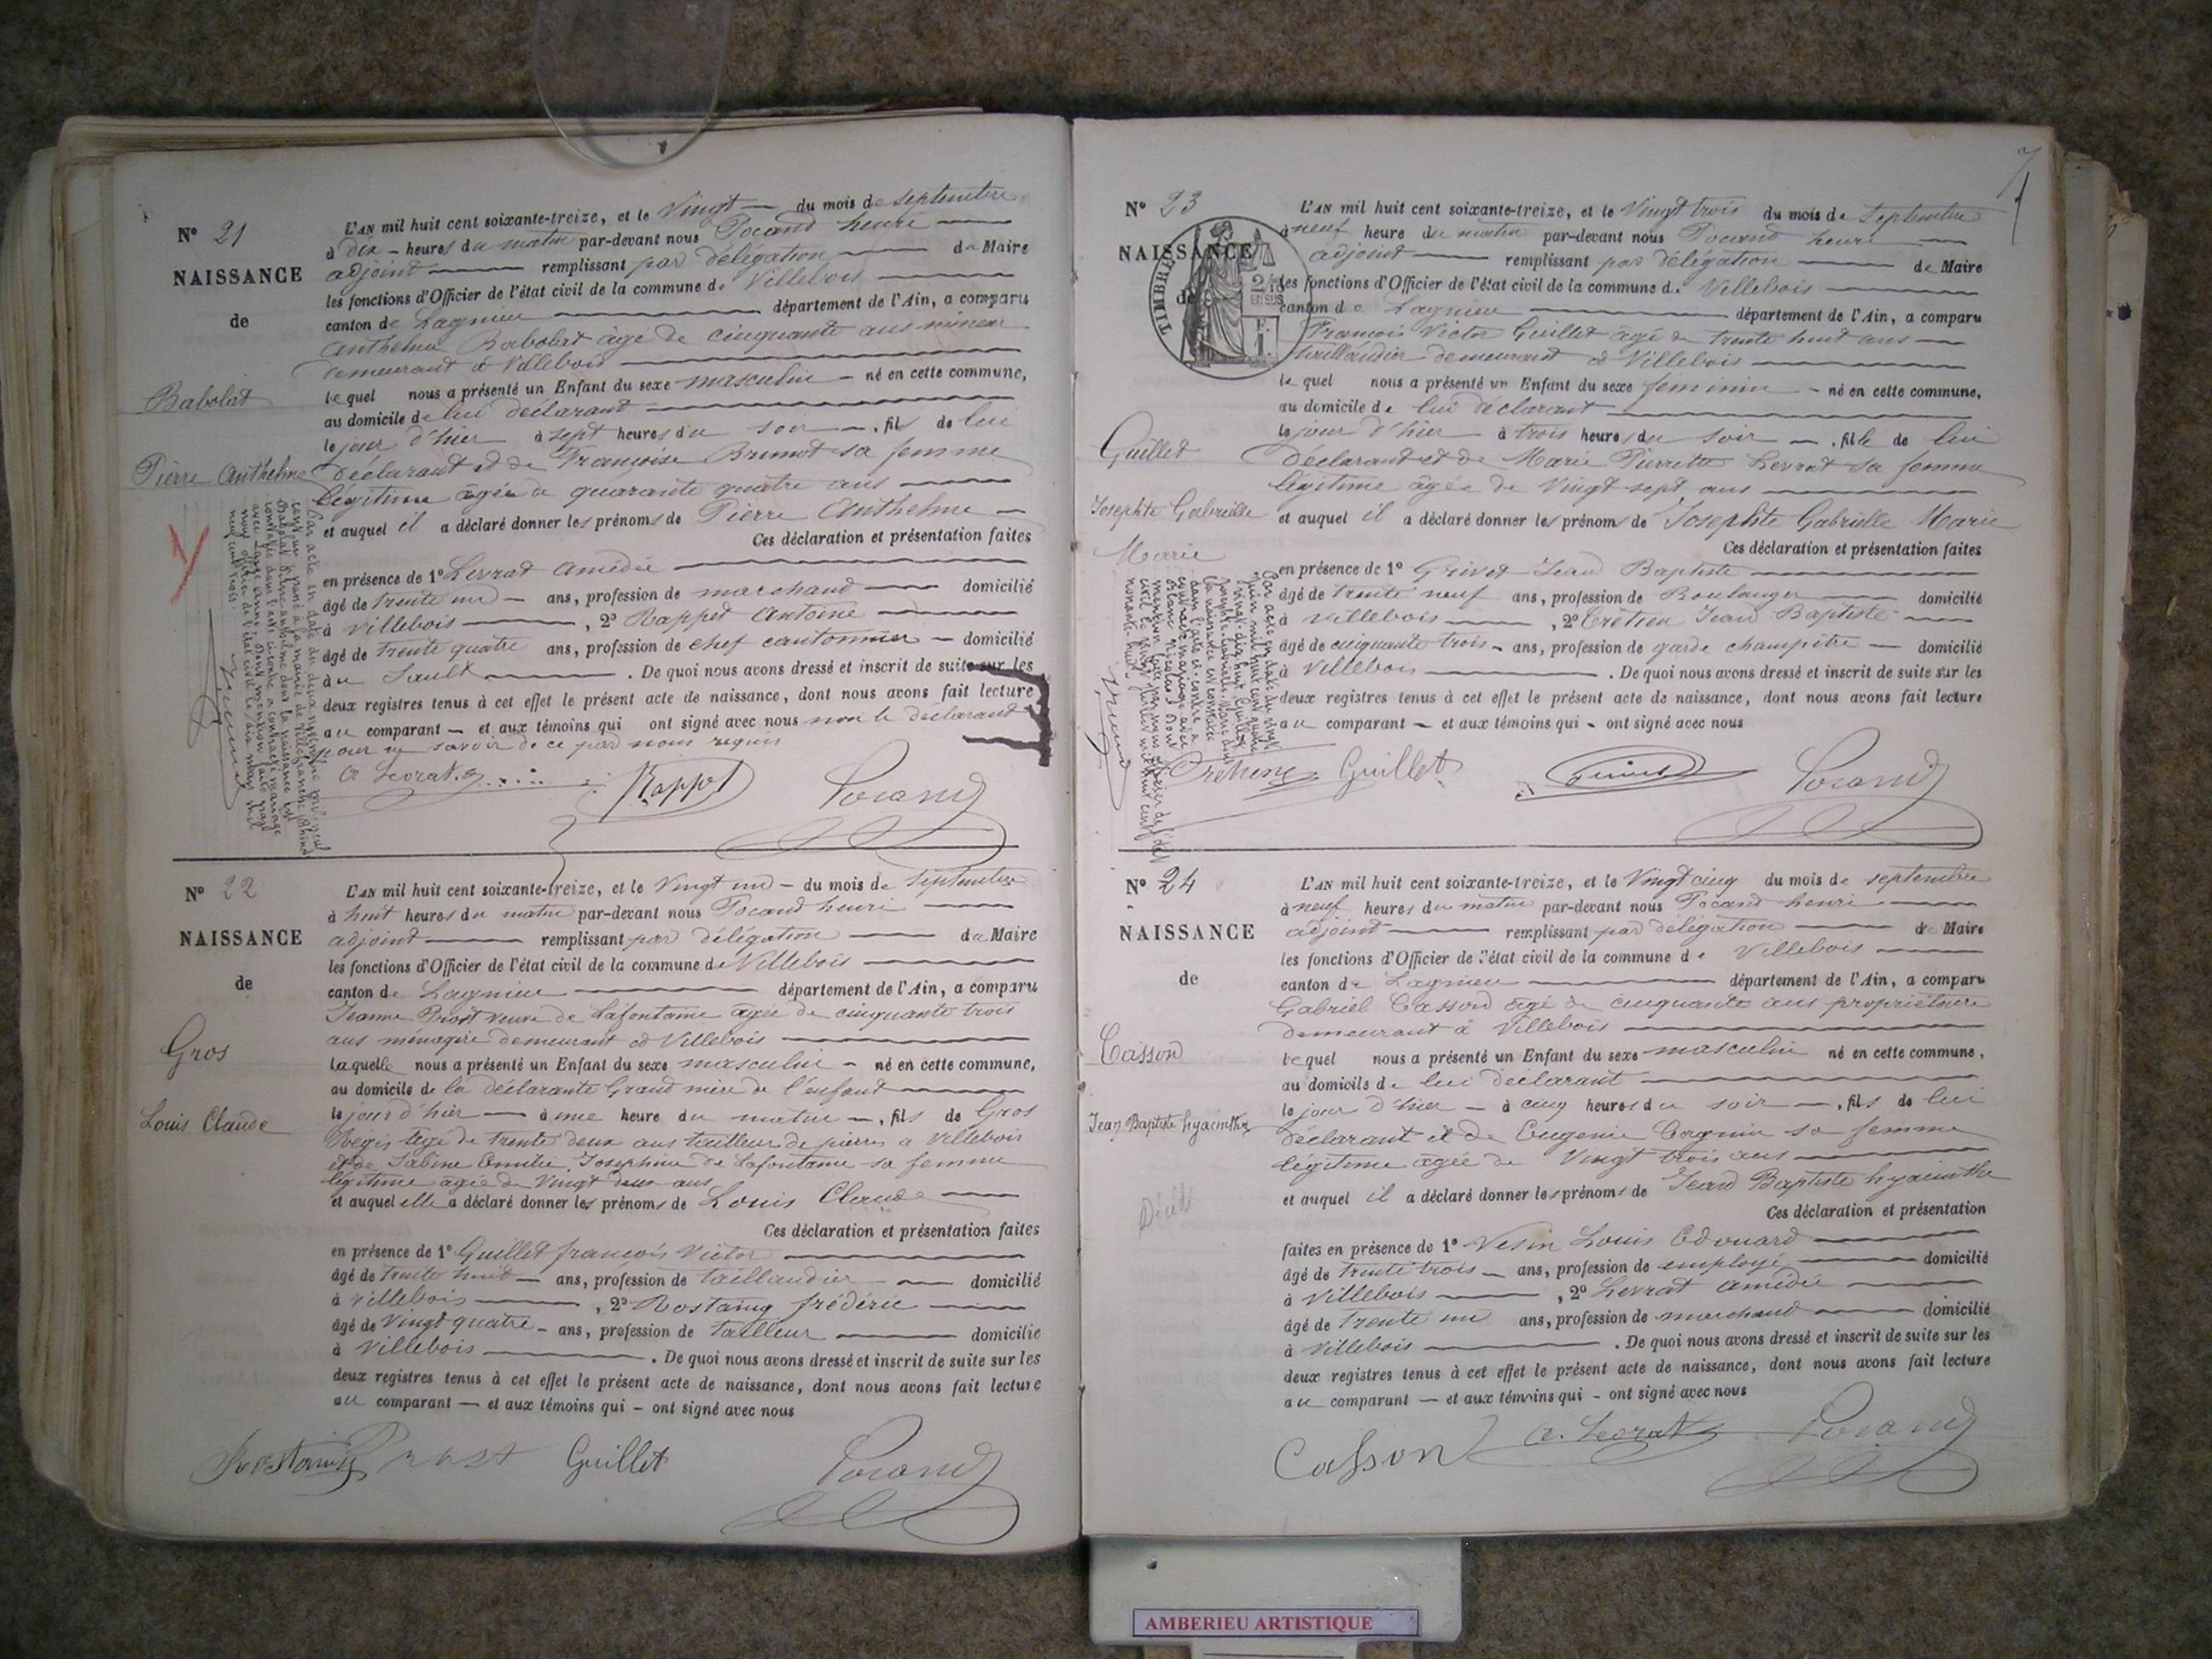 N° 21
NAISSANCE
de
Babolat
Pierre Anthelme
L'AN mil huit cent soixante-treize, et le Vingt du mois de septembre
à dix heures du matin par-devant nous Pocand henri
adjoint remplissant par délégation du Maire
les fonctions d'Officier de l'état civil de la commune de Villebois
canton de Lagnieu département de l'Ain, a comparu
Anthelme Babolat âgé de cinquante ans mineur
demeurant à Villebois
lequel nous a présenté un Enfant du sexe masculin né en cette commune,
au domicile de lui déclarant
le jour d'hier à sept heures du soir, fils de lui
déclarant et de Françoise Brunot sa femme
légitime âgée de quarante quatre ans
et auquel il a déclaré donner les prénoms de Pierre Anthelme
Ces déclaration et présentation faites
en présence de 1° Levrat Amédée
âgé de trente un ans, profession de marchand domicilié
à Villebois, 2° Rappet Antoine
âgé de trente quatre ans, profession de chef cantonnier domicilié
au Sault. De quoi nous avons dressé et inscrit de suite sur les
deux registres tenus à cet effet le présent acte de naissance, dont nous avons fait lecture
au comparant et aux témoins qui ont signé avec nous non le déclarant
pour ne savoir de ce par nous requis
A Levrat Rappet Pocand
N° 22
NAISSANCE
de
Gros
Louis Claude
L'AN mil huit cent soixante-treize, et le Vingt un du mois de septembre
à huit heures du matin par-devant nous Pocand henri
adjoint remplissant par délégation du Maire
les fonctions d'Officier de l'état civil de la commune de Villebois
canton de Lagnieu département de l'Ain, a comparu
Jeanne veuve de Lafontaine âgée de cinquante trois
ans ménagère demeurant à Villebois
laquelle nous a présenté un Enfant du sexe masculin né en cette commune,
au domicile de la déclarante Grand mère de l'enfant
le jour d'hier à une heure du matin, fils de Gros
Régis âgé de trente deux ans tailleur de pierres à Villebois
et de Sabine Emilie Josephine de Lafontaine sa femme
légitime âgée de Vingt deux ans
et auquel elle a déclaré donner les prénoms de Louis Claude
Ces déclaration et présentation faites
en présence de 1° Guillet françois Victor
âgé de trente huit ans, profession de taillandier domicilié
à Villebois, 2° Rostaing frédéric
âgé de Vingt quatre ans, profession de tailleur domicilié
à Villebois. De quoi nous avons dressé et inscrit de suite sur les
deux registres tenus à cet effet le présent acte de naissance, dont nous avons fait lecture
au comparant et aux témoins qui ont signé avec nous
Rostaing Guillet Pocand
7
N° 23
NAISSANCE
de
TIMBRE
Guillet
Josephte Gabrielle
Marie
L'AN mil huit cent soixante-treize, et le Vingt trois du mois de Septembre
à neuf heure du matin par-devant nous Pocand henri
adjoint remplissant par délégation de Maire
les fonctions d'Officier de l'état civil de la commune de Villebois
canton de Lagnieu département de l'Ain, a comparu
François Victor Guillet âgé de trente huit ans
taillandier demeurant à Villebois
lequel nous a présenté un Enfant du sexe feminin né en cette commune,
au domicile de lui déclarant
le jour d'hier à trois heures du soir, fille de lui
déclarant et de Marie Pierrette Levrat sa femme
légitime âgée de Vingt sept ans
et auquel il a déclaré donner les prénoms de Josephte Gabrielle Marie
Ces déclaration et présentation faites
en présence de 1° Grivet Jean Baptiste
âgé de trente neuf ans, profession de Boulanger domicilié
à Villebois, 2° Crétien Jean Baptiste
âgé de cinquante trois ans, profession de garde champêtre domicilié
à Villebois. De quoi nous avons dressé et inscrit de suite sur les
deux registres tenus à cet effet le présent acte de naissance, dont nous avons fait lecture
au comparant et aux témoins qui ont signé avec nous
Guillet Pocand
N° 24
NAISSANCE
de
Casson
Jean Baptiste hyacinthe
Décédé
L'AN mil huit cent soixante-treize, et le Vingt cinq du mois de septembre
à neuf heures du matin par-devant nous Pocand henri
adjoint remplissant par délégation de Maire
les fonctions d'Officier de l'état civil de la commune de Villebois
canton de Lagnieu département de l'Ain, a comparu
Gabriel Casson âgé de cinquante ans propriétaire
demeurant à Villebois
lequel nous a présenté un Enfant du sexe masculin né en cette commune,
au domicile de lui déclarant
le jour d'hier à cinq heures du soir, fils de lui
déclarant et de Eugenie Cagnin sa femme
légitime âgée de Vingt trois ans
et auquel il a déclaré donner les prénoms de Jean Baptiste hyacinthe
Ces déclaration et présentation
faites en présence de 1° Vesin Louis Edouard
âgé de trente trois ans, profession de employé domicilié
à Villebois, 2° Levrat Amédée
âgé de trente un ans, profession de marchand domicilié
à Villebois. De quoi nous avons dressé et inscrit de suite sur les
deux registres tenus à cet effet le présent acte de naissance, dont nous avons fait lecture
au comparant et aux témoins qui ont signé avec nous
Casson A. Levrat Pocand
AMBERIEU ARTISTIQUE